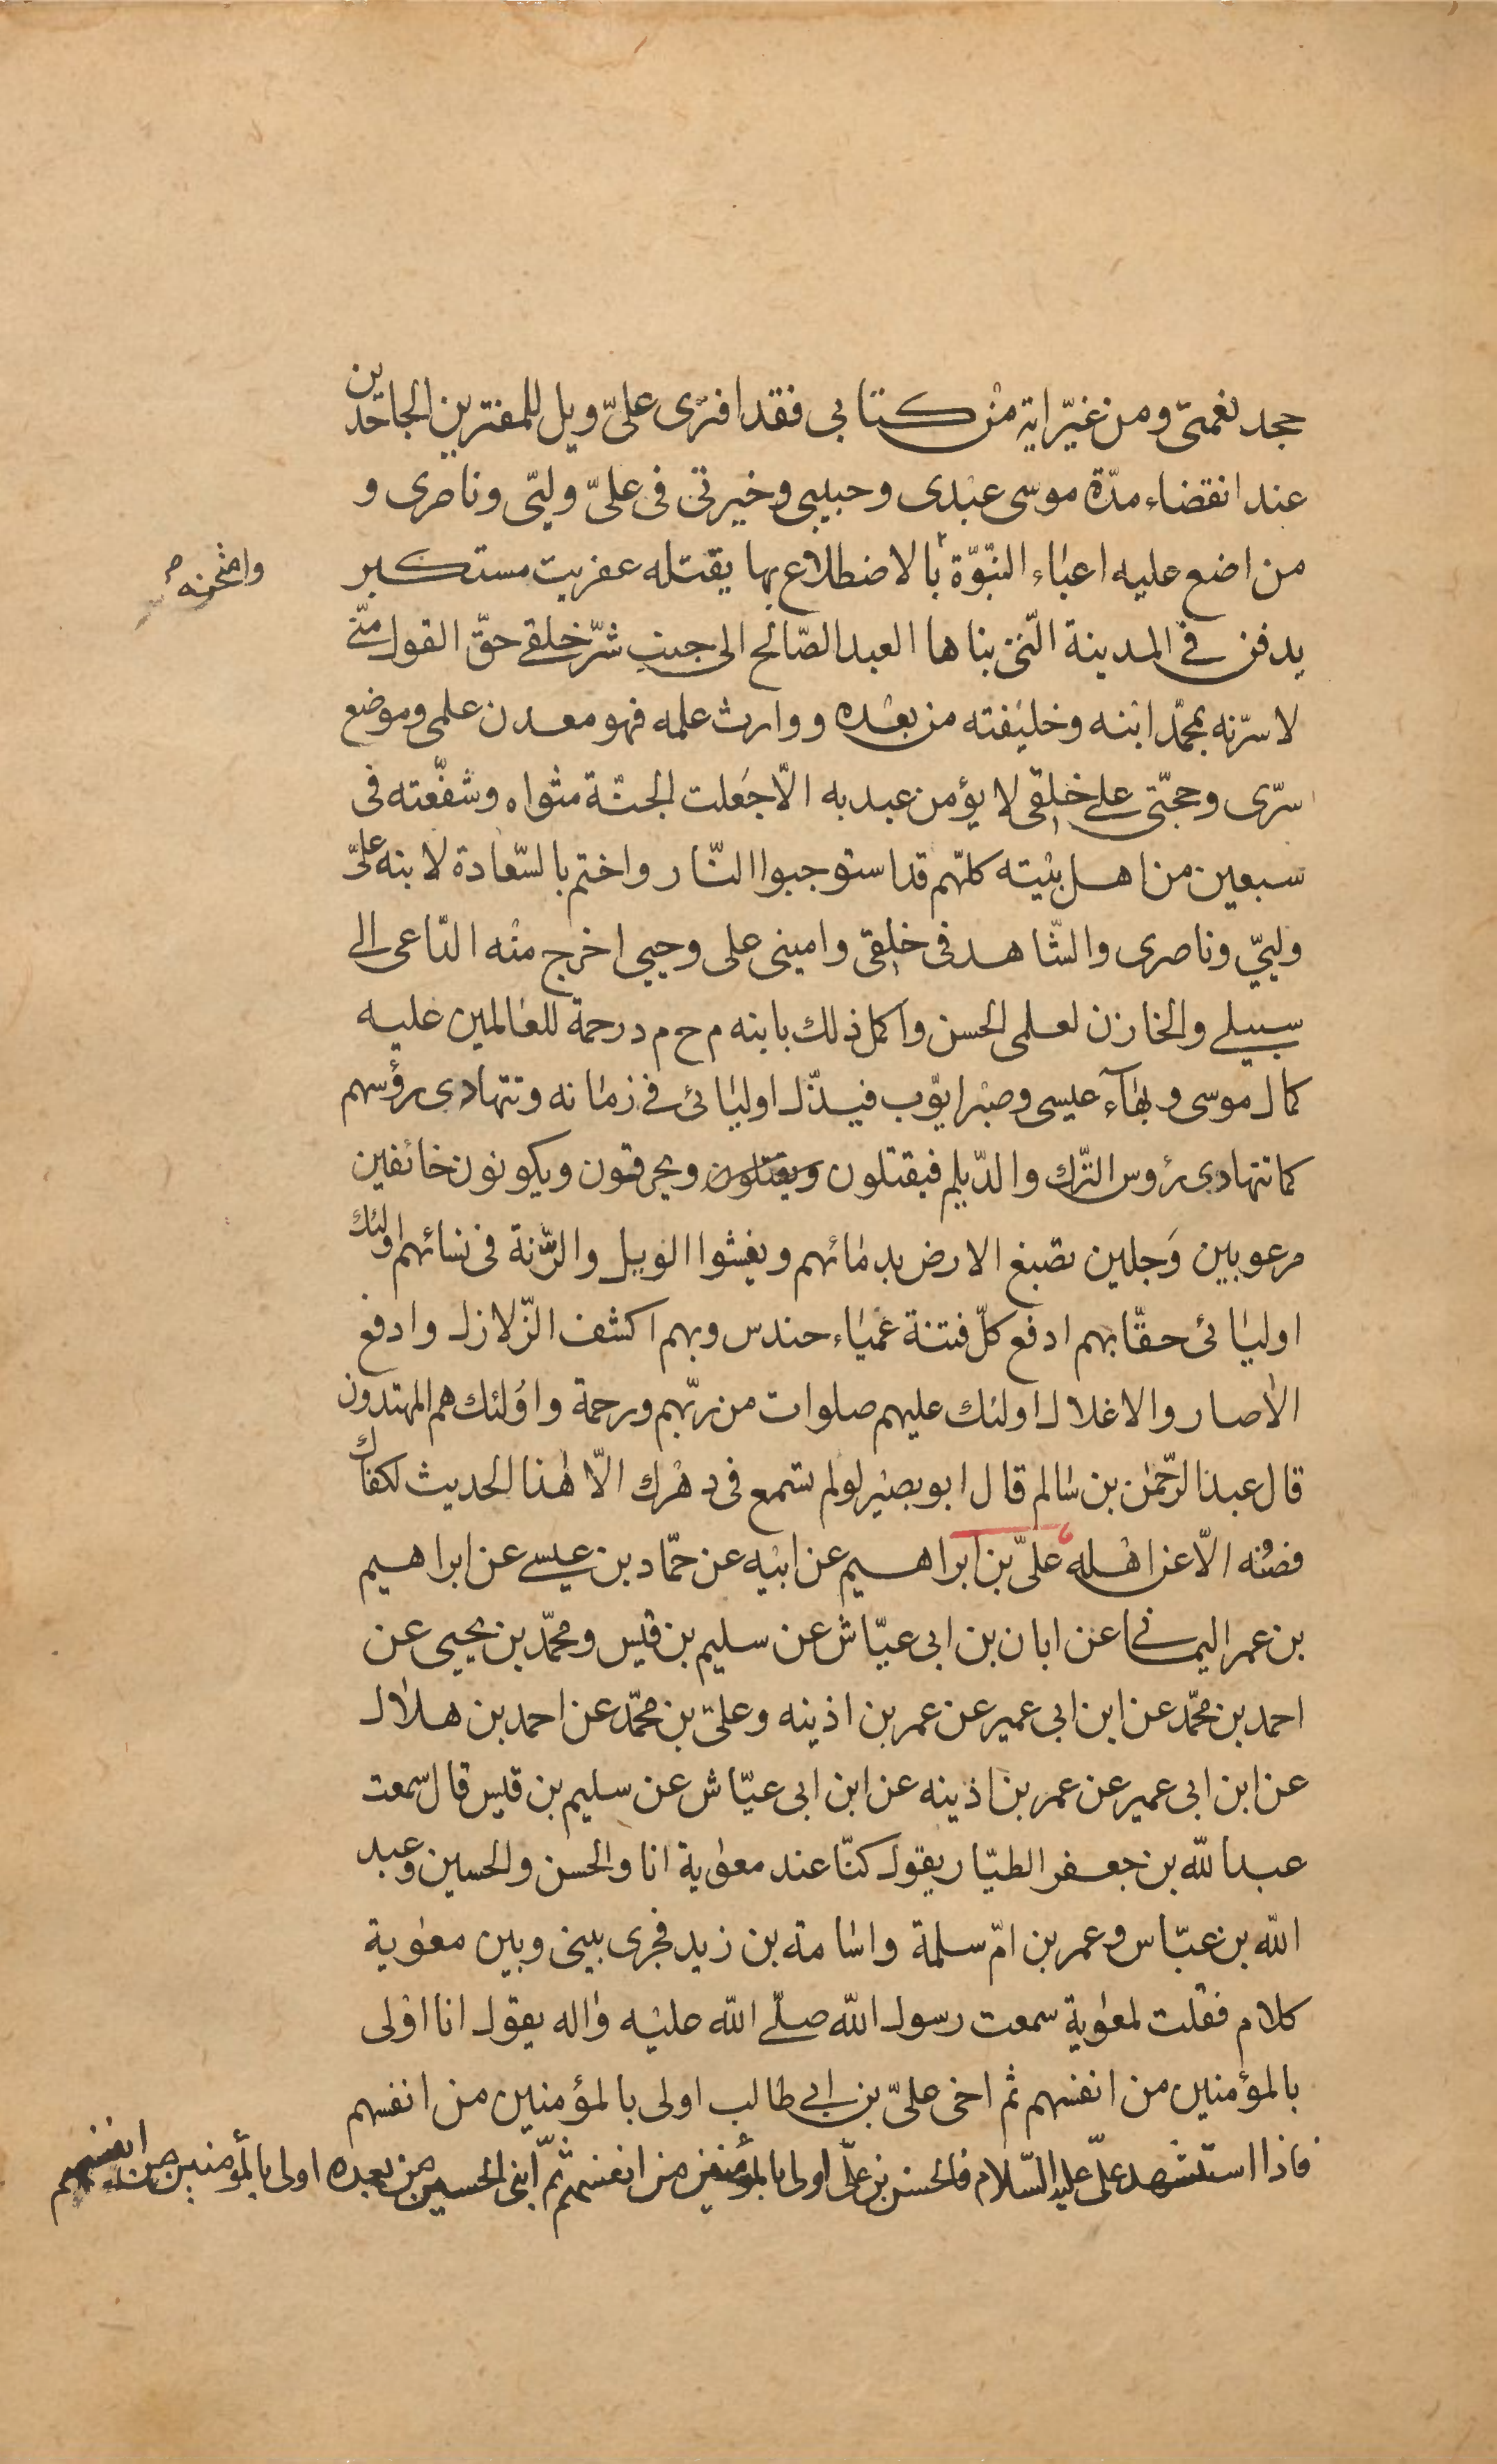 جحد نعمتى ومن غيّر اية من كتابى فقد افترى علىّ ويل للمفترين الجاحدين
عند انقضاء مدّة موسى عبدى وحبيبى وخيرتى فى علىّ وليّى وناصرى و
من اضع عليه اعباء النّبوّة بالاضطلاع بها يقتله عفريت مستكبر
وامتحنه
يدفن فى المدينة الّتى بناها العبد الصّالح الى جنب شرّ خلقى حقّ القول منّى
لاسرّنه بمحمّد ابنه وخليفته من بعده ووارث علمه فهو معدن علمى وموضع
سرّى وحجّتى على خلقى لا يؤمن عبد به الّا جعلت الجنّة مثواه وشفّعته فى
سبعين من اهل بيته كلّهم قد استوجبوا النّار واختم بالسّعادة لابنه علىّ
وليّي وناصرى والشّاهد فى خلقى وامينى على وحيي اخرج منه الدّاعى الى
سبيلى والخازن لعلمى الحسن واكمل ذلك بابنه م ح م د رحمة للعالمين عليه
كمال موسى وبهآء عيسى وصبر ايّوب فيذّل اوليائى فى زمانه وتتهادى رؤسهم
كما تتهادى رؤس الترّك والدّيلم فيقتلون ويقتلون ويحرقون ويكونون خائفين
مرعوبين وَجلين تصبغ الارض بدمائهم ويفشوا الويل والرّنة فى نسائهم اولئك
اوليائى حقّا بهم ادفع كلّ فتنة عمياء حندس وبهم اكشف الزّلازل وادفع
الاصار والاغلال اولئك عليهم صلوات من ربّهم ورحمة واولئك هم المهتدون
قال عبد الرّحمٰن بن سالم قال ابو بصير لو لم تسمع فى دهرك الّا هٰذا الحديث لكفاك
فصنه الّا عن اهله علىّ بن ابراهيم عن ابيه عن حمّاد بن عيسى عن ابراهيم
بن عمر اليمانى عن ابان بن ابى عيّاش عن سليم بن قيس ومحمّد بن يحيى عن
احمد بن محمّد عن ابن ابى عمير عن عمر بن اذينه وعلىّ بن محمّد عن احمد بن هلال
عن ابن ابى عمير عن عمر بن اذينه عن ابن ابى عيّاش عن سليم بن قيس قال سمعت
عبد اللّه بن جعفر الطيّار يقول كنّا عند معوٰية انا والحسن والحسين وعبد
اللّه بن عبّاس وعمر بن امّ سلمة واسامة بن زيد فجرى بينى وبين معوٰية
كلام فقلت لمعوٰية سمعت رسول اللّه صلّى اللّه عليه واله يقول انا اولى
بالمؤمنين من انفسهم ثم اخى علىّ بن ابى طالب اولى بالمؤمنين من انفسهم
فاذا استشهد علىّ عليه السّلام فالحسن بن علىّ اولى بالمؤمنين من انفسهم ثمّ ابنى الحسين من بعده اولى بالمؤمنين من انفسهم